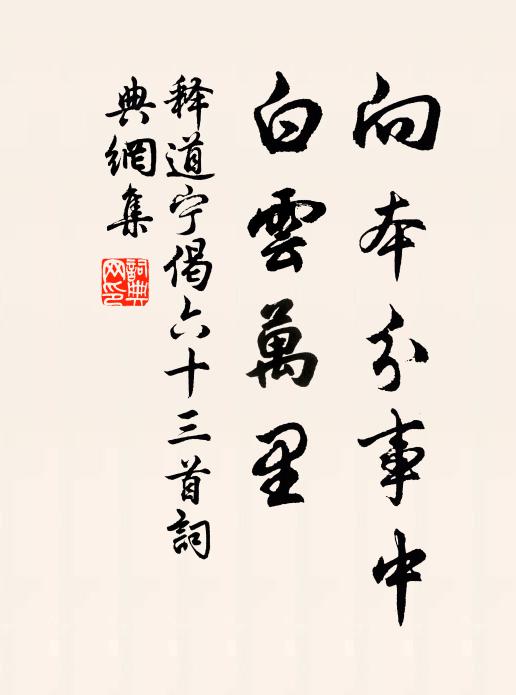 向本分事中
白雲萬里
释道宁偈六十三首詞
典網集
詞典
网印